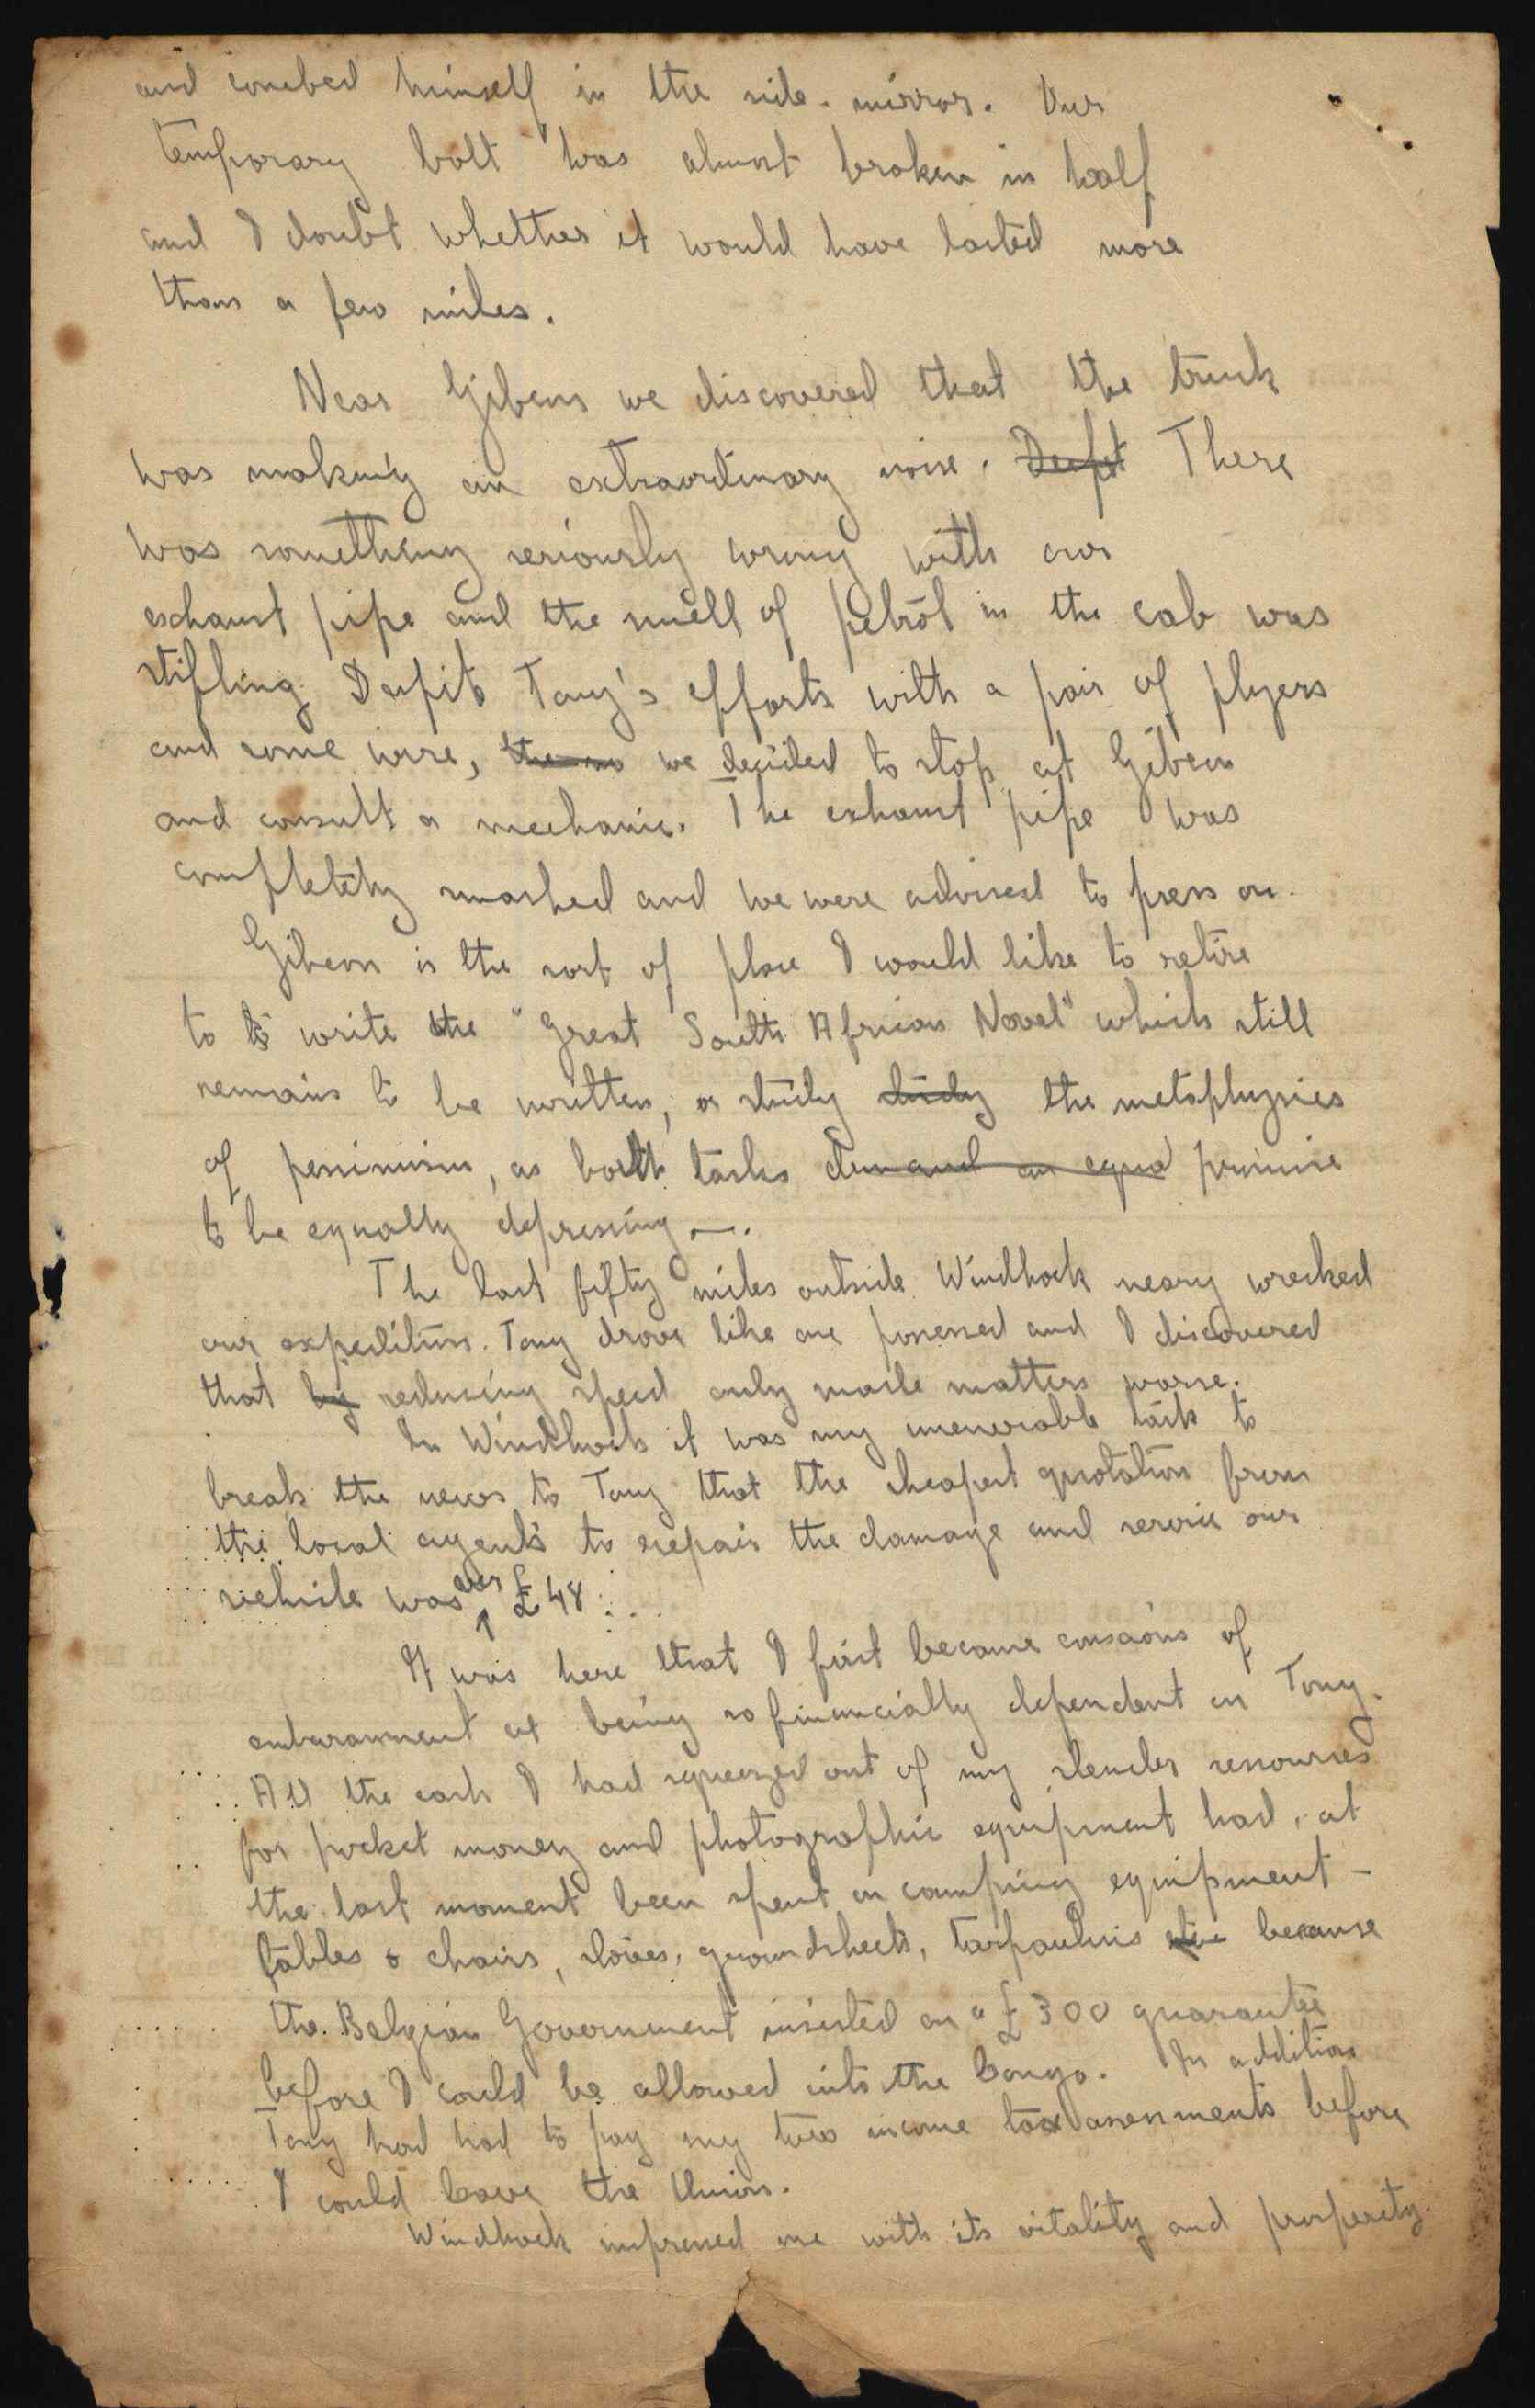 and combed himself in the side-mirror. Our
temporary bolt was almost broken in half
and I doubt whether it would have lasted more
than a few miles.
Near Gibeon we discovered that the truck
was making an extraordinary noise. Despt There
was something seriously wrong with our
exhaust pipe and the smell of petrol in the cab was
stifling. Despite Tony's efforts with a pair of plyers
and some wire, we decided to stop at Gibeon
and consult a mechanic. The exhaust pipe was
completely smashed and we were advised to press on.
Gibeon is the sort of place I would like to retire
to to write the "Great South African Novel" which still
remains to be written, or study study the metaphysics
of pessimism, as both tasks demand an equa promise
to be equally depressing —.
The last fifty miles outside Windhoek neary wrecked
our expedition. Tony drove like one possessed and I discovered
that by reducing speed only made matters worse.
In Windhoek it was my unenviable task to
break the news to Tony that the cheapest quotation from
the local agents to repair the damage and service our
vehicle was over £48
It was here that I first became conscious of
embarassment at being so financially dependent on Tony.
All the cash I had squeezed out of my slender resources
for pocket money and photographic equipment had, at
the last moment been spent on camping equipment -
tables & chairs, stoves, groundsheets, tarpaulins because
the Belgian Government insisted on a £300 guarantee
before I could be allowed into the Congo. In addition
Tony had had to pay my two income tax assessments before
I could leave the Union.
Windhoek impressed me with its vitality and prosperity.